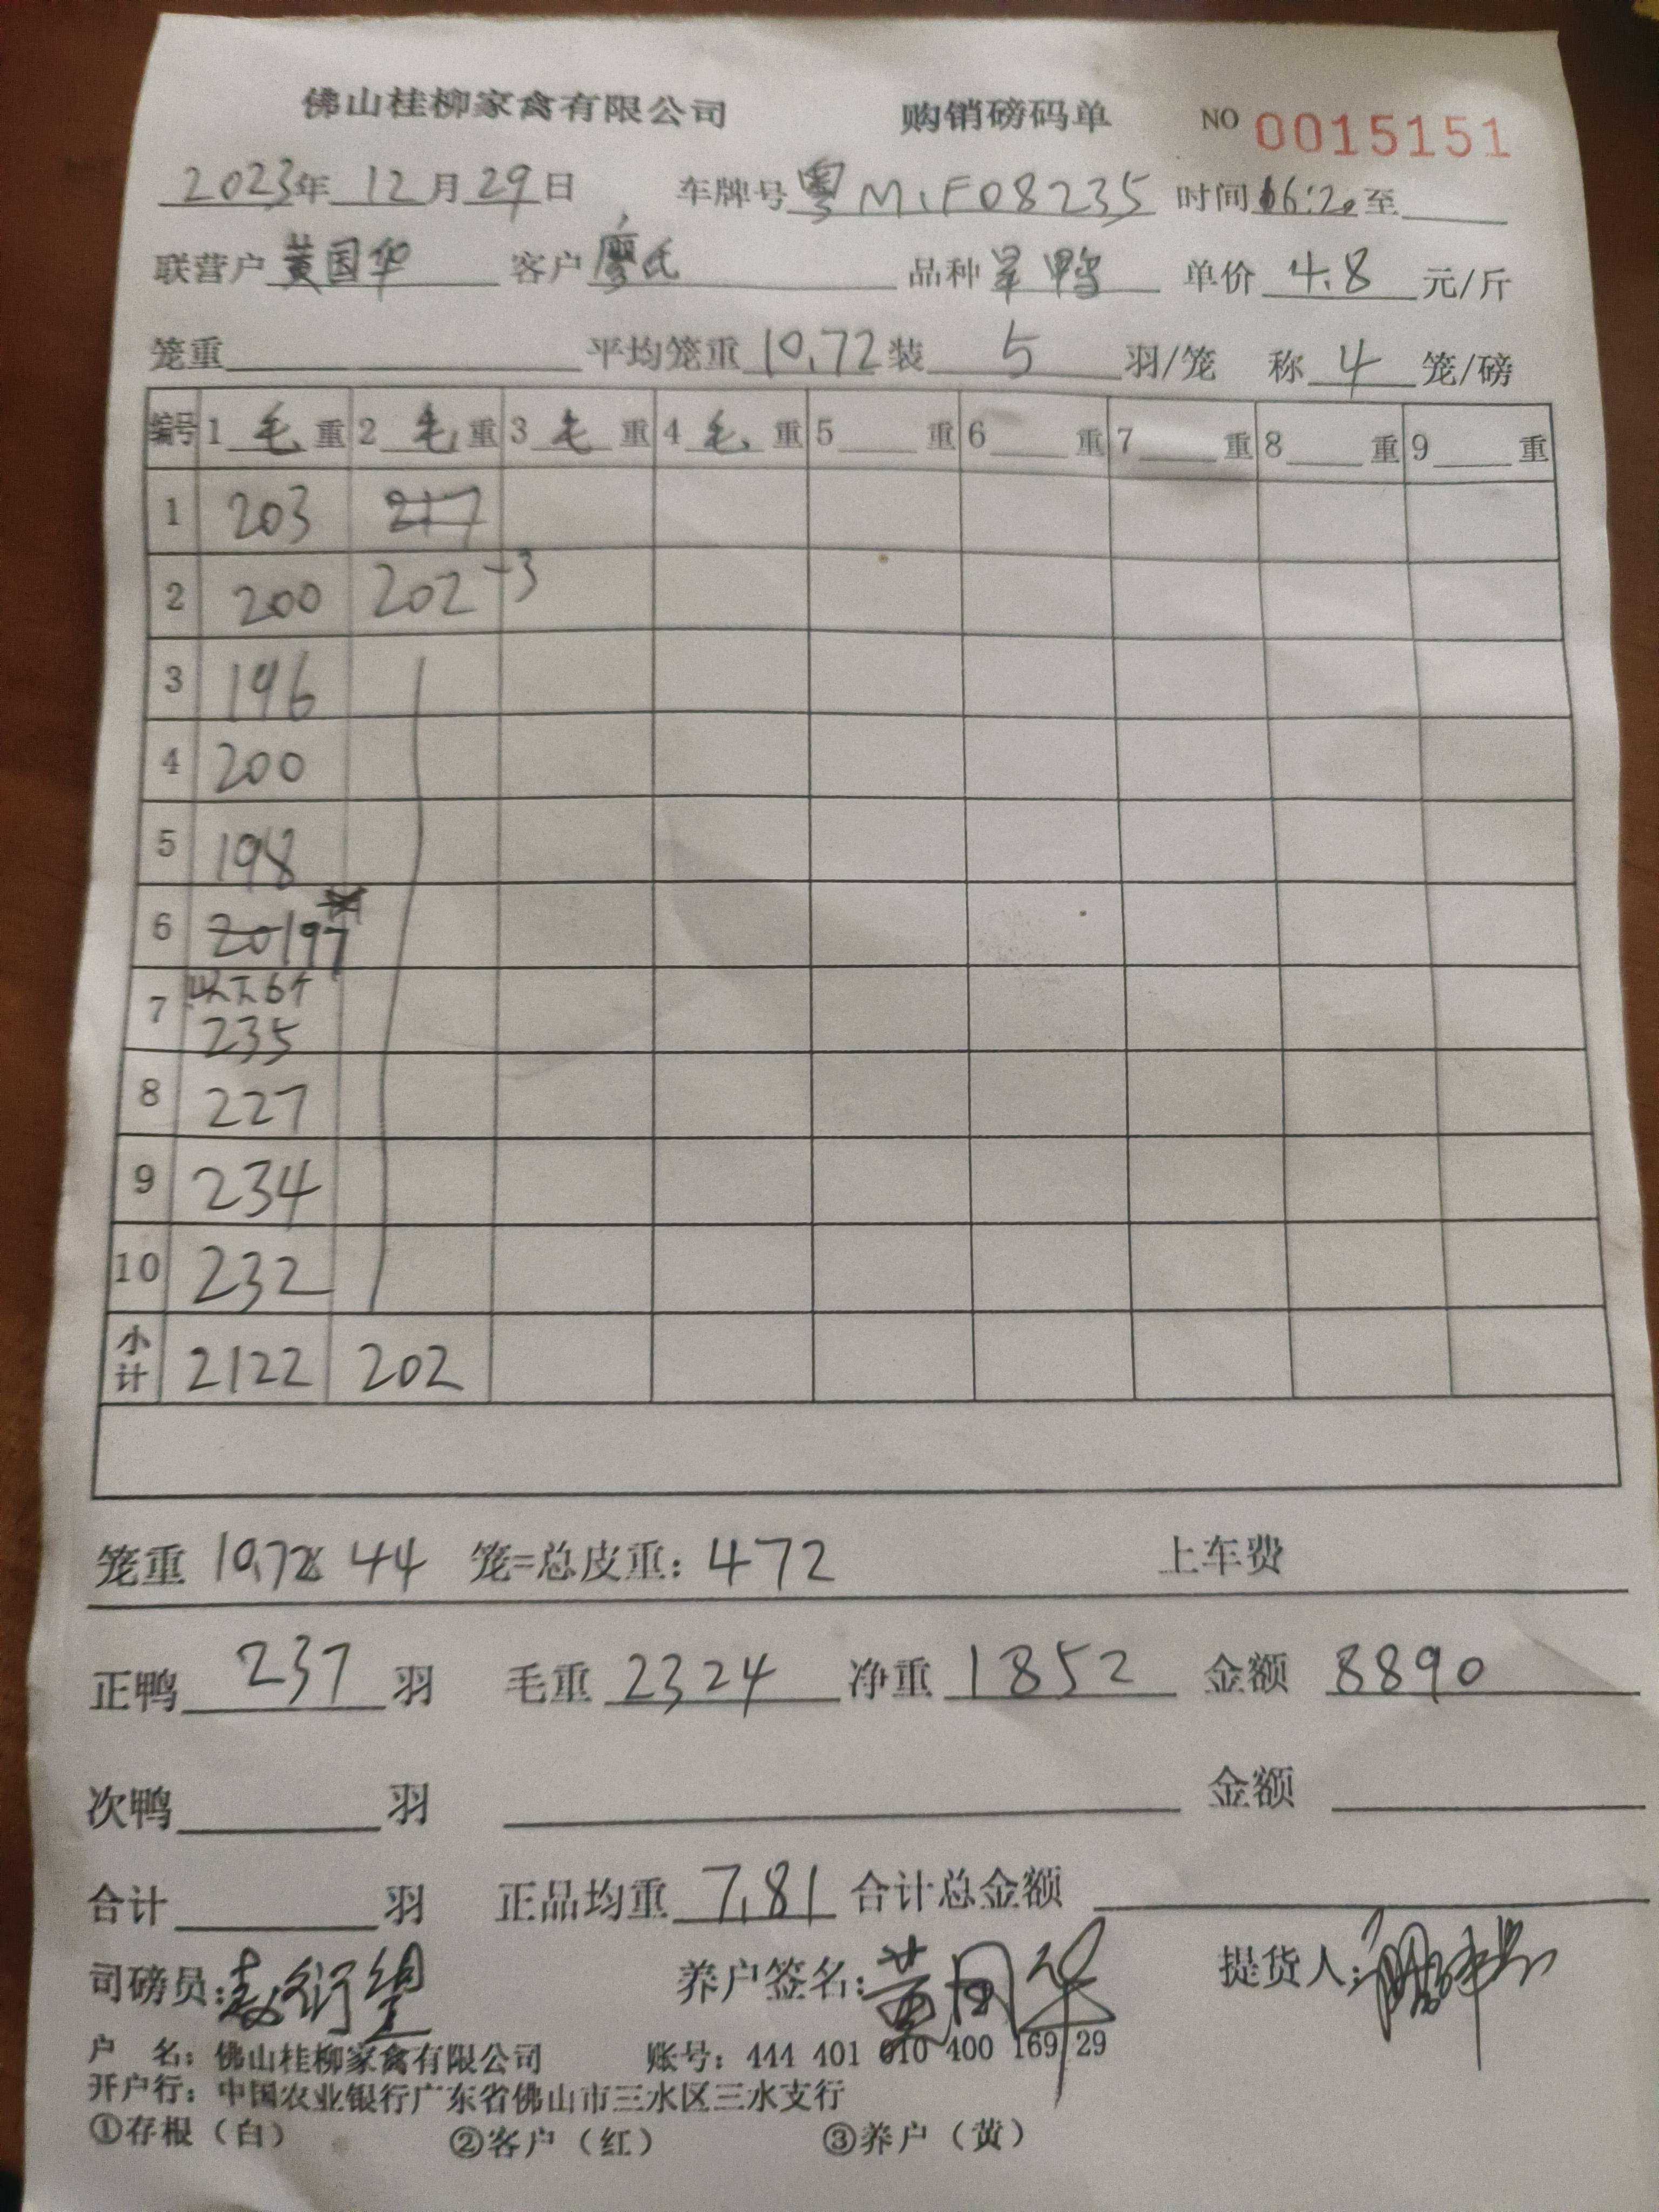 佛山桂柳家禽有限公司 购销磅码单 NO 0015151
2023年 12月29日 车牌号 粤M.F08235 时间 16:20 至
联营户 黄国华 客户 廖氏 品种 旱鸭 单价 4.8 元/斤
笼重 平均笼重 10.72 装 5 羽/笼 称 4 笼/磅
编号 1 毛 重 2 毛 重 3 毛 重 4 毛 重 5 重 6 重 7 重 8 重 9 重
1 203 217
2 200 202 -3
3 196
4 200
5 198
6 20 197
7 以下6个
235
8 227
9 234
10 232
小计 2122 202
笼重 10.72x 44 笼=总皮重: 472 上车费
正鸭 237 羽 毛重 2324 净重 1852 金额 8890
次鸭 羽 金额
合计 羽 正品均重 7.81 合计总金额
司磅员: 养户签名: 黄国华 提货人:
户 名: 佛山桂柳家禽有限公司 账号: 444 401 010 400 169 29
开户行: 中国农业银行广东省佛山市三水区三水支行
①存根（白） ②客户（红） ③养户（黄）